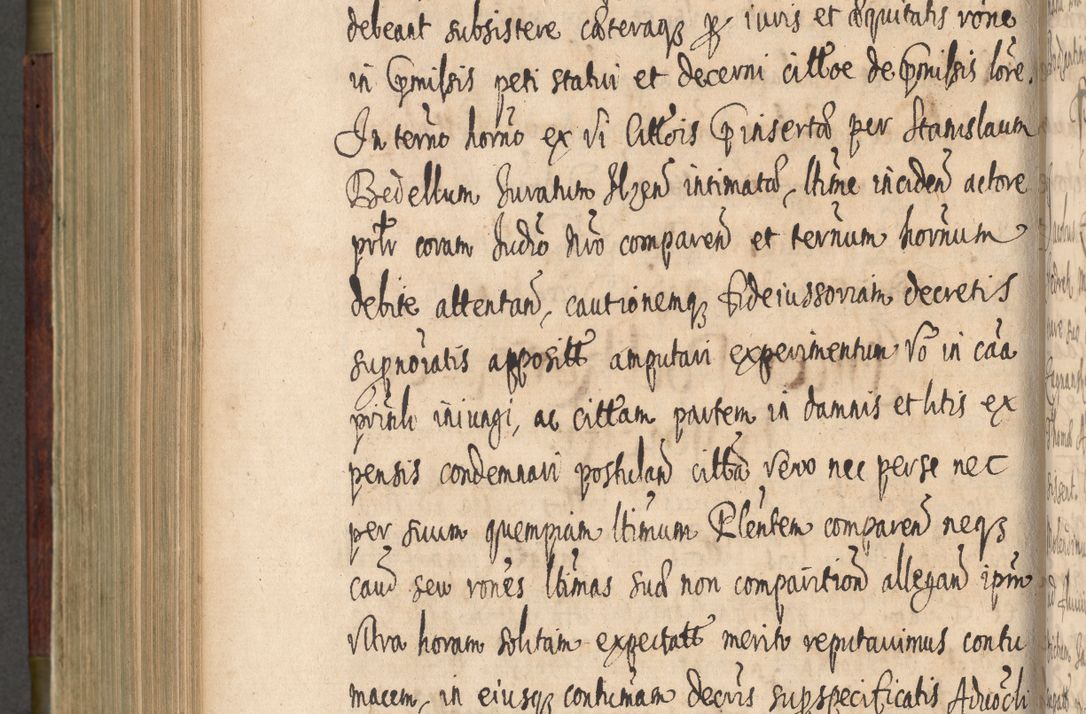 debeant subsistere cæteraqꝫ ꝓ iuris et æquitatis rõne
in p̃missis peti statui et decerni cittõe de p̃missis lõre.
In termõ hornõ ex vi Cittõis p̃insertæ per Stanislaum
Bedellum Juratum Ilzen̄ intimatæ, ltime inciden̄ actore
prltr coram Judiõ Nrõ comparen̄ et ternum hornum
debite attentan̄, cautionemqꝫ fideiussoriam decretis
supnõratis apposītt amputari experimentum Võ in cãa
prinli iniungi, ac cittam partem in damnis et litis ex
pensis condemnari postulan̄ cittã vero nec per se nec
per suum quempiam ltimum Plentem comparen̄ neqꝫ
cau̅ seu rones ltimas suæ non comparition̄ allegan̄ ipm̃
vltra horam solitam expectatt merito reputauimus contu
macem, in eiusqꝫ contumãm decris supspecificatis Aduocti